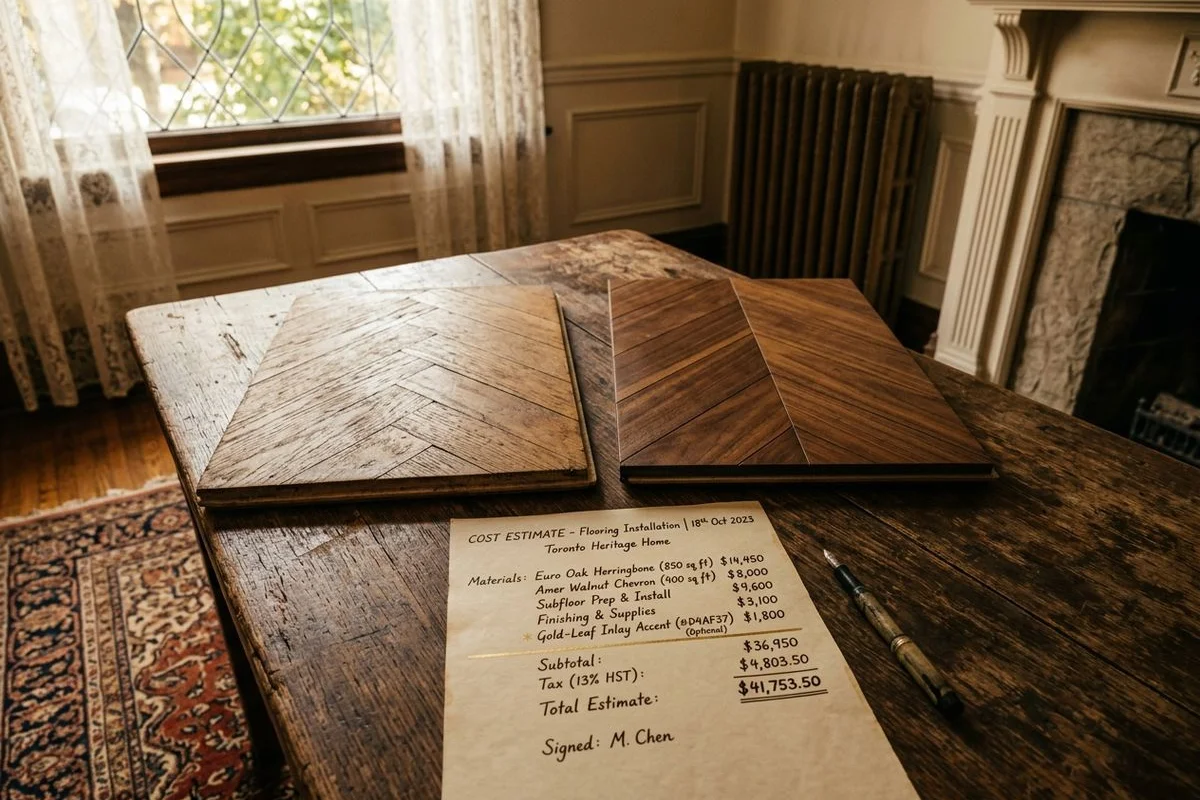 COST ESTIMATE - Flooring Installation | 18th Oct 2023
Toronto Heritage Home
Materials: Euro Oak Herringbone (850 sq ft) $14,450
Amer Walnut Chevron (400 sq ft) $8,000
Subfloor Prep & Install $9,600
Finishing & Supplies $3,100
* Gold-Leaf Inlay Accent (#D4AF37) $1,800
(Ophenal)
Subtotal: $36,950
Tax (13% HST): $4,803.50
Total Estimate: $41,753.50
Signed: M. Chen